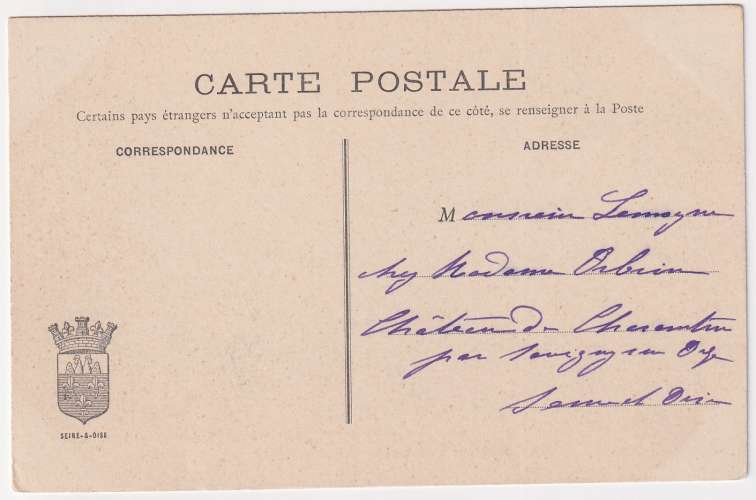 CARTE POSTALE
Certains pays étrangers n'acceptent pas la correspondance de ce côté, se renseigner à la Poste
CORRESPONDANCE
ADRESSE
Monsieur Lemoyne
chez Madame
Château de Charentru
par Savigny sur Orge
Seine et Oise
SEINE-&-OISE